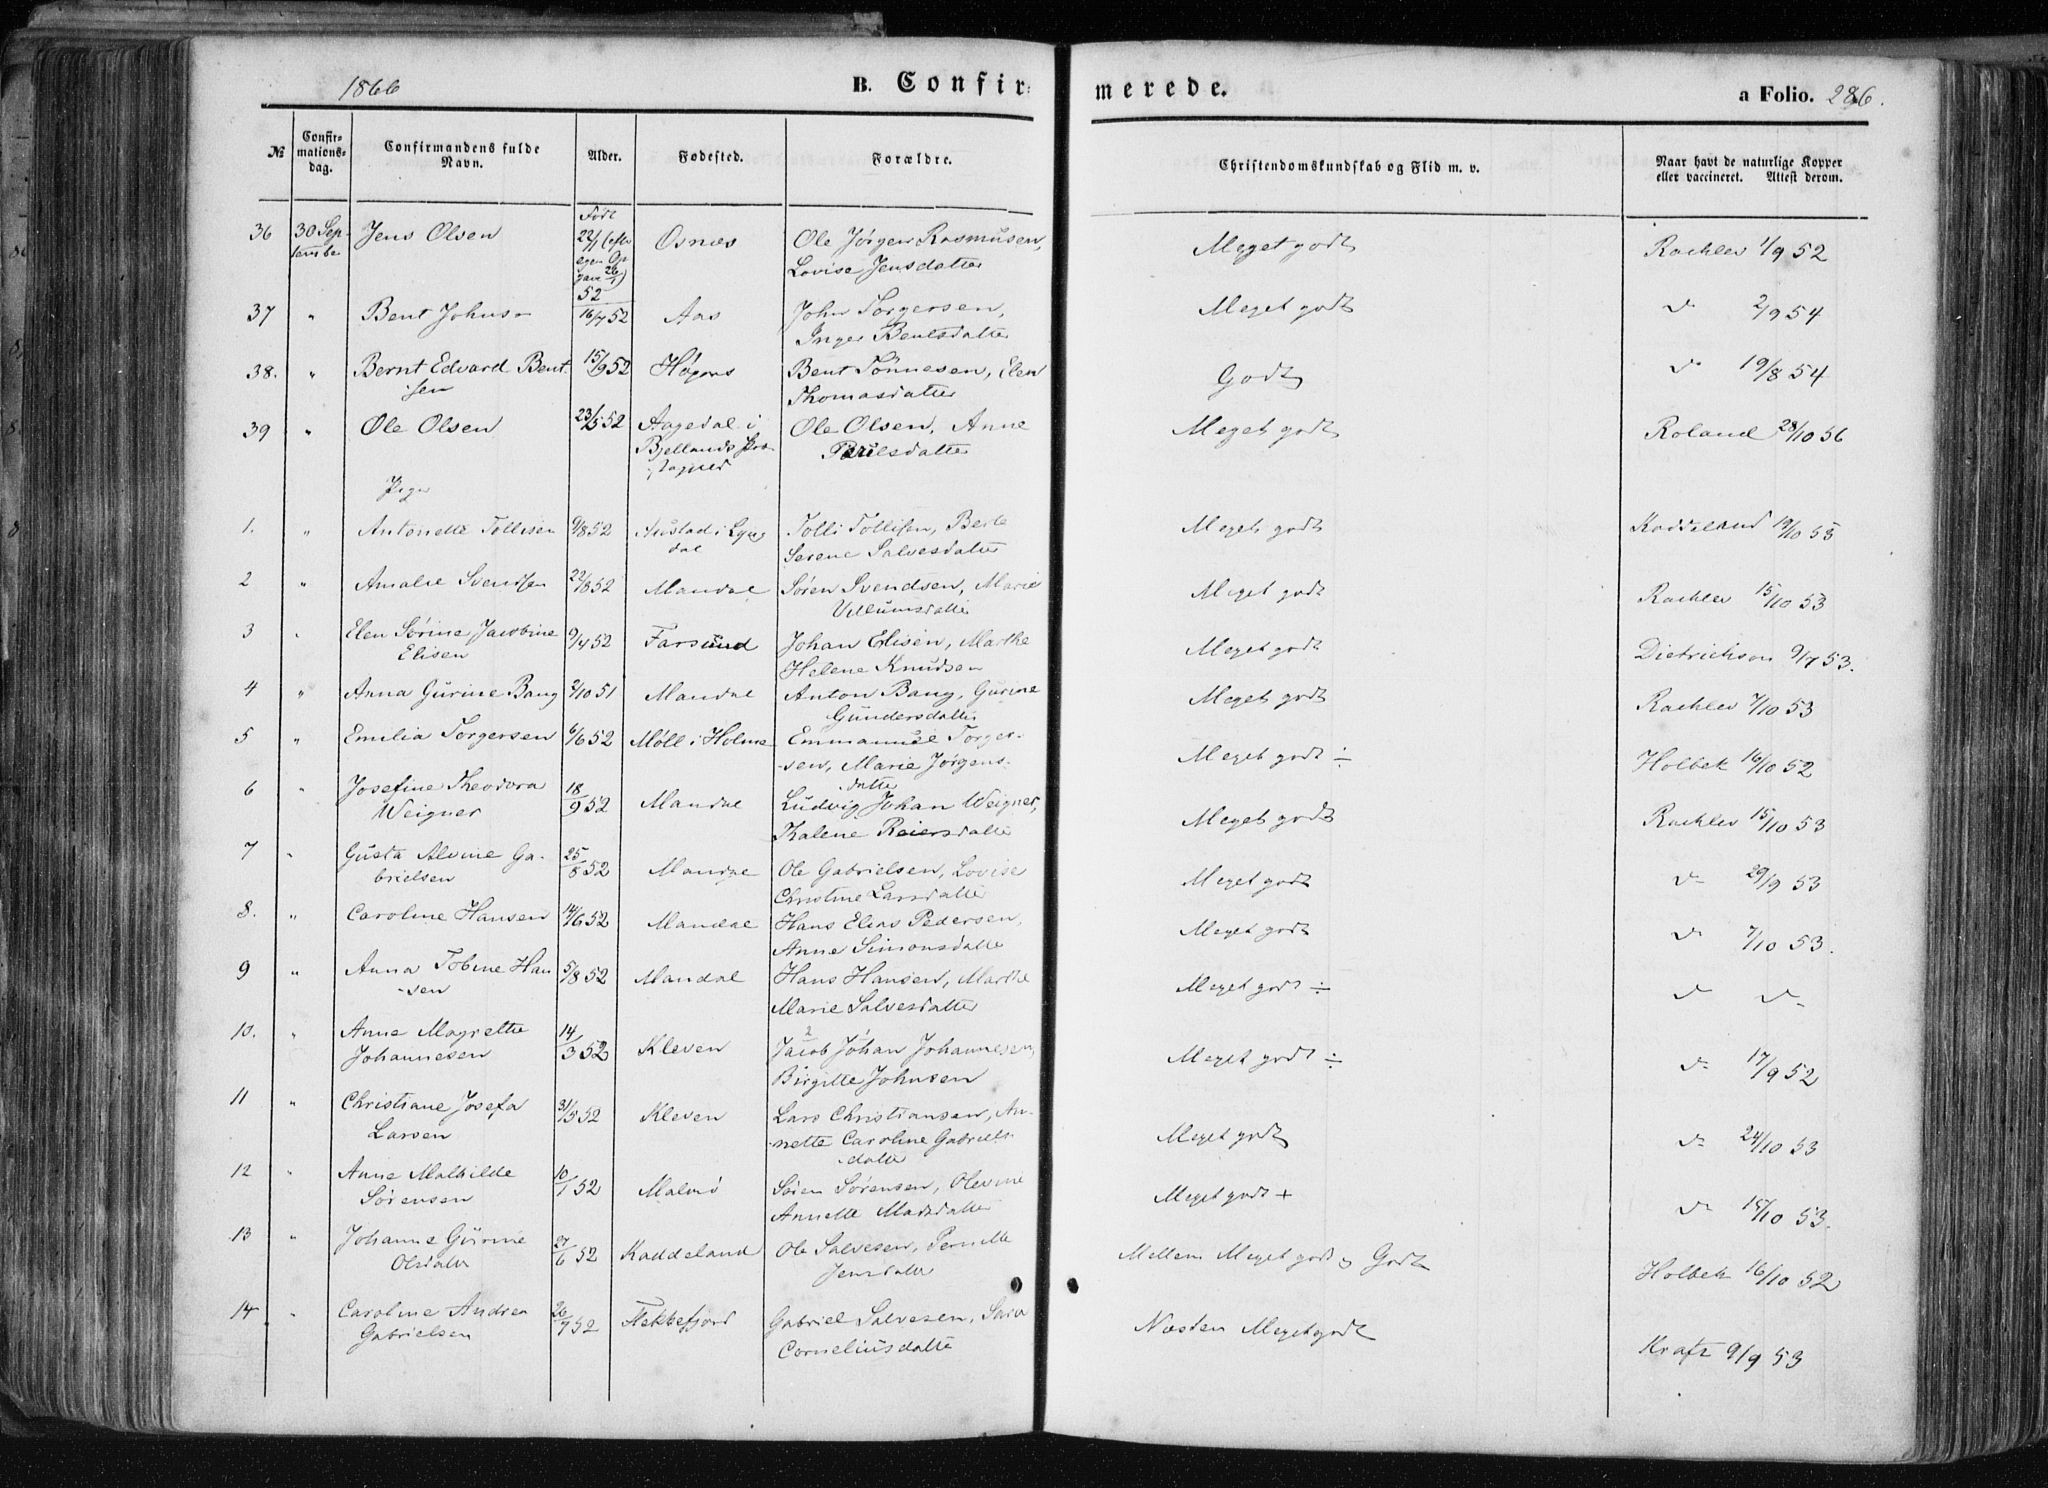 1866 B. Confirmerede. a Folio. 286.
№ Confirmationsdag. Confirmandens fulde Navn. Alder. Fødested. Forældre. Christendomskundskab og Flid m. v. Naar havt de naturlige Kopper eller vaccineret. Attest derom.
Født
36 30 Sep- Jens Olsen 22/1 (efter Osnæs Ole Jørgen Rasmusen, Meget godt Rachlev 1/9 52
tember egen Op Lovise Jensdatter
gave 26/1)
52
37 " Bent Johns- 16/7 52 Aas John Torgersen, Meget godt do 2/9 54
Inger Bentsdatter
38. " Bernt Edvard Bent 15/9 52 Bent Tønnesen, Elen Godt do 19/8 54
sen Thomasdatter
39 " Ole Olsen 23/5 52 Aagedal i Ole Olsen, Anne Meget godt Roland 28/10 56
Bjellands Præ Paulsdatter
stegjeld
Piger
1. " Antonette Tollisen 9/8 52 i Lyng Tolli Tollisen, Berte Meget godt Kaddeland 19/10 53
dal Serene Salvesdatter
2 " Amalie Svendsen 22/8 52 Mandal Søren Svendsen, Marie Meget godt Rachlev 15/10 53
Villumsdatter
3 " Elen Sørine Jacobine 9/4 52 Farsund Johan Elisen, Marthe Meget godt Dietrichson 9/7 53.
Elisen Helene Knudsen
4 " Anna Gurine Bang 2/10 51 Mandal Anton Bang, Gurine Meget godt Rachlev 7/10 53
Gundersdatter
5 " Emilia Torgersen 6/6 52 Møll i Holme Emmanuel Torger- Meget godt ÷ Holbek 16/10 52
sen, Marie Jørgens-
datter
6 " Josefine Theodora 18/9 52 Mandal Ludvig Johan Weigner, Meget godt Rachlev 15/10 53
Weigner Kalene Reiersdatter
7 " Gusta Alvine Ga- 25/8 52 Mandal Ole Gabrielsen, Lovise Meget godt do 29/9 53
brielsen Christine Larsdatter
8. " Caroline Hansen 14/6 52 Mandal Hans Elias Pedersen, Meget godt do 7/10 53.
Anne Simonsdatter
9 " Anna Tobine Han 5/8 52 Mandal Hans Hansen, Marthe Meget godt ÷ do do
-sen Marie Salvesdatter
10. " Anne Magrette 14/3 52 Kleven Jacob Johan Johannesen, Meget godt ÷ do 17/9 52
Johannesen Birgitte Johnsen
11 " Christiane Josefa 31/5 52 Kleven Lars Christiansen, An- Meget godt do 24/10 53
Larsen nette Caroline Gabriels
datter
12 " Anne Mathilde 10/1 52 Malmø Søren Sørensen, Olevine Meget godt + do 15/10 53.
Sørensen Annette Madsdatter
13 " Johanne Gurine 27/6 52 Kaddeland Ole Salvesen, Pernille Mellem Meget godt og Godt Holbek 16/10 52
Olsdatter Jensdatter
14 " Caroline Andrea 26/7 52 Flekkefjord Gabriel Salvesen, Sara Næsten Meget godt Kraft 9/9 53
Gabrielsen Corneliusdatte